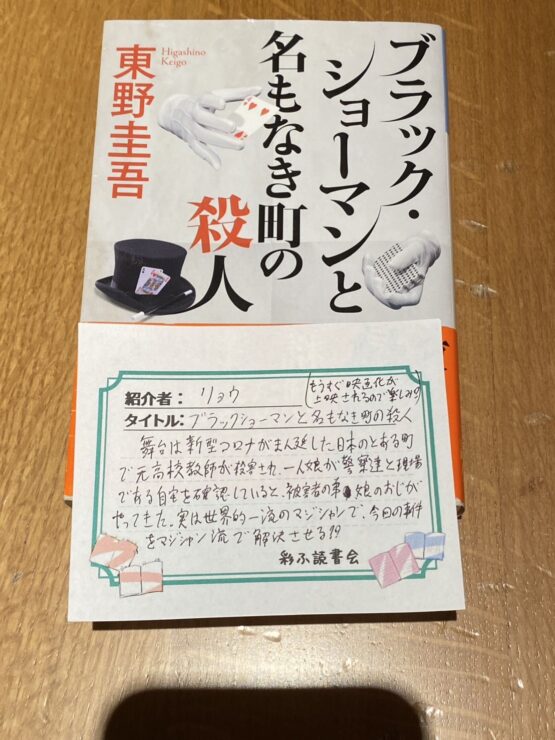 ブラック・
ショーマンと
名もなき町の
殺人
Higashino
Keigo
東野圭吾
紹介者： リョウ
(もうすぐ映画化が
上映されるので楽しみ
タイトル：ブラックショーマンと名もなき町の殺人
舞台は新型コロナがまん延した日本のとある町
で元高校教師が殺害され、一人娘が警察達と現場
である自宅を確認していると、被害者の弟 娘のおじが
やってきた。実は世界的一流のマジシャンで、今回の事件
をマジシャン流で解決させる
彩ふ読書会